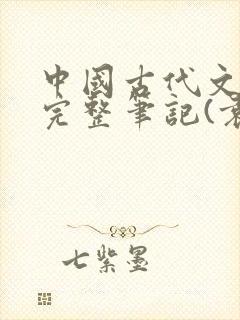 中國古代文
完整筆記(袁
七紫墨